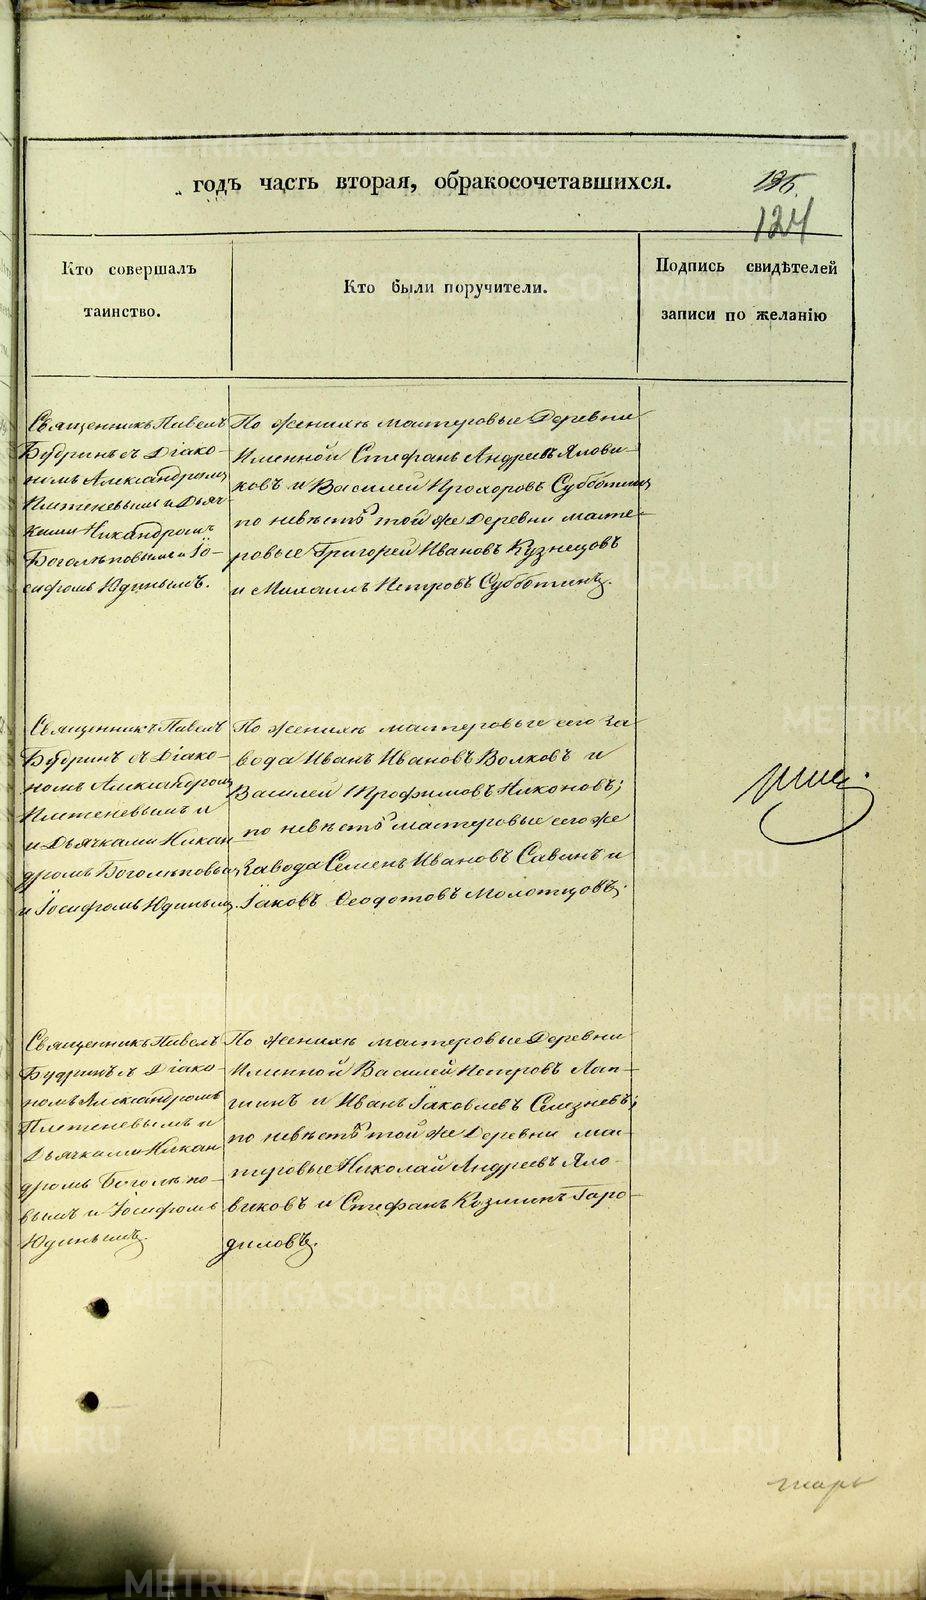 годъ часть вторая, обракосочетавшихся.
124
Кто совершалъ
таинство.
Кто были поручители.
Подпись свидѣтелей
записи по желанію
Священникъ Павелъ
Будринъ съ Діако-
номъ Александромъ
Плетеневымъ и Дьяч-
ками Никандромъ
Боголѣповымъ и Іо-
сифомъ Юдинымъ.
По женихѣ мастеровые Деревни
Именной Стефанъ Андреевъ Ялови-
ковъ и Василей Прохоровъ Субботинъ
по невѣстѣ той же Деревни масте-
ровые Григорей Ивановъ Кузнецовъ
и Михаилъ Петровъ Субботинъ.
Священникъ Павелъ
Будринъ съ Діако-
номъ Александромъ
Плетеневымъ и
и Дьячками Никан
дромъ Боголѣповым
и Іосифомъ Юдинымъ.
По женихѣ мастеровые сего за
вода Иванъ Ивановъ Волковъ и
Василей Трофимовъ Никоновъ;
по невѣстѣ мастеровые сего же
Завода Семенъ Ивановъ Савинъ и
Іаковъ Ѳеодотовъ Молотцовъ;
Священникъ Павелъ
Будринъ съ Діако-
номъ Александромъ
Плетеневымъ и
Дьячками Никан
дромъ Боголѣпо-
вымъ и Іосифомъ
Юдинымъ.
По женихѣ мастеровые Деревни
Именной Василей Петровъ Лап-
шинъ и Иванъ Іаковлевъ Селезневъ;
по невѣстѣ той же Деревни мас-
теровые Николай Андреевъ Яло-
виковъ и Стефанъ Козминъ Горо-
диловъ.
METRIKI.GASO-URAL.RU